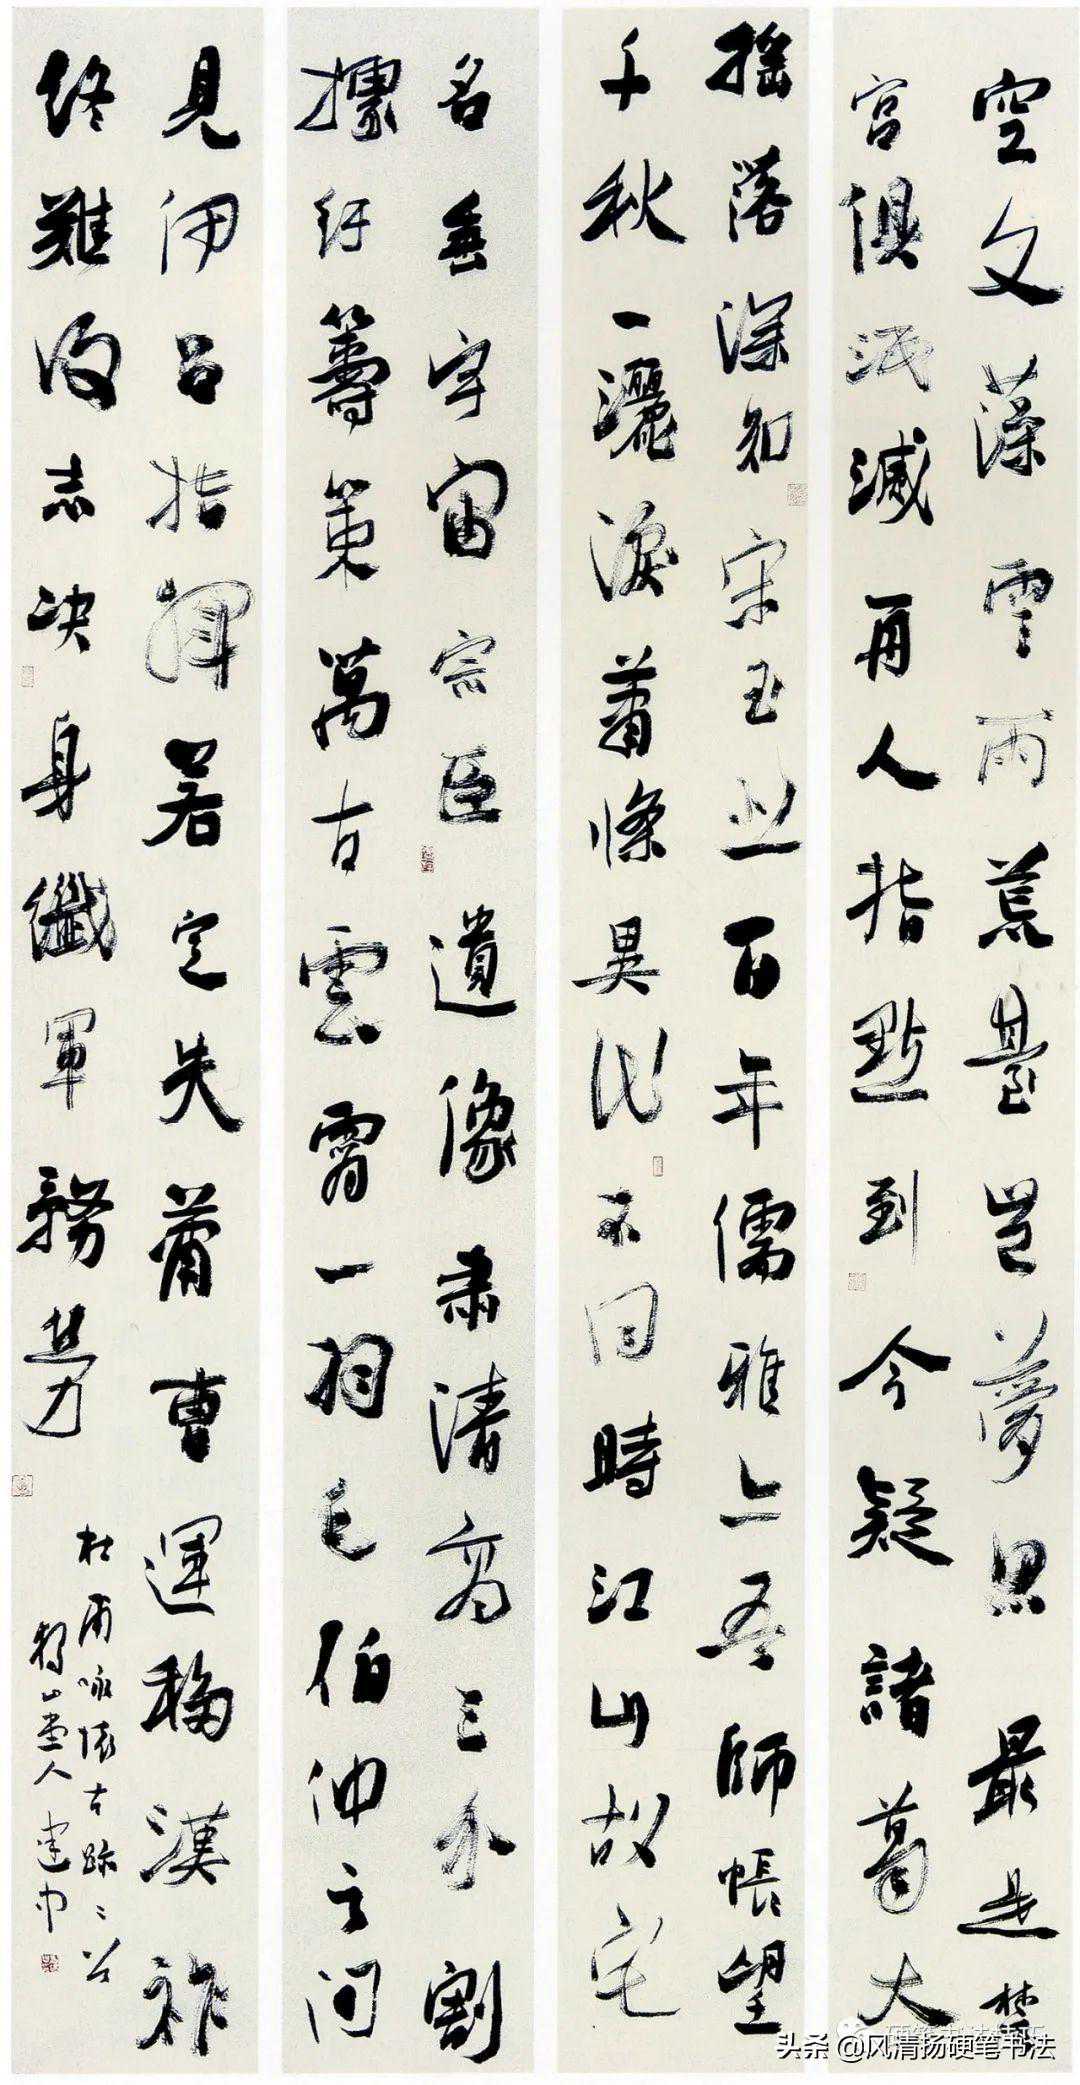 空文藻雲雨荒臺豈夢思最是楚
宮俱泯滅舟人指點到今疑諸葛大
搖落深知宋玉悲百年儒雅亦吾師帳望
千秋一灑淚蕭條異代不同時江山故宅
名垂宇宙宗臣遺像肅清高三分割
據紆籌策萬古雲霄一羽毛伯仲之間
見伊呂指揮若定失蕭曹運移漢祚
終難復志決身殲軍務勞
杜甫咏懷古跡二首
人建中
头条 @风清扬硬笔书法